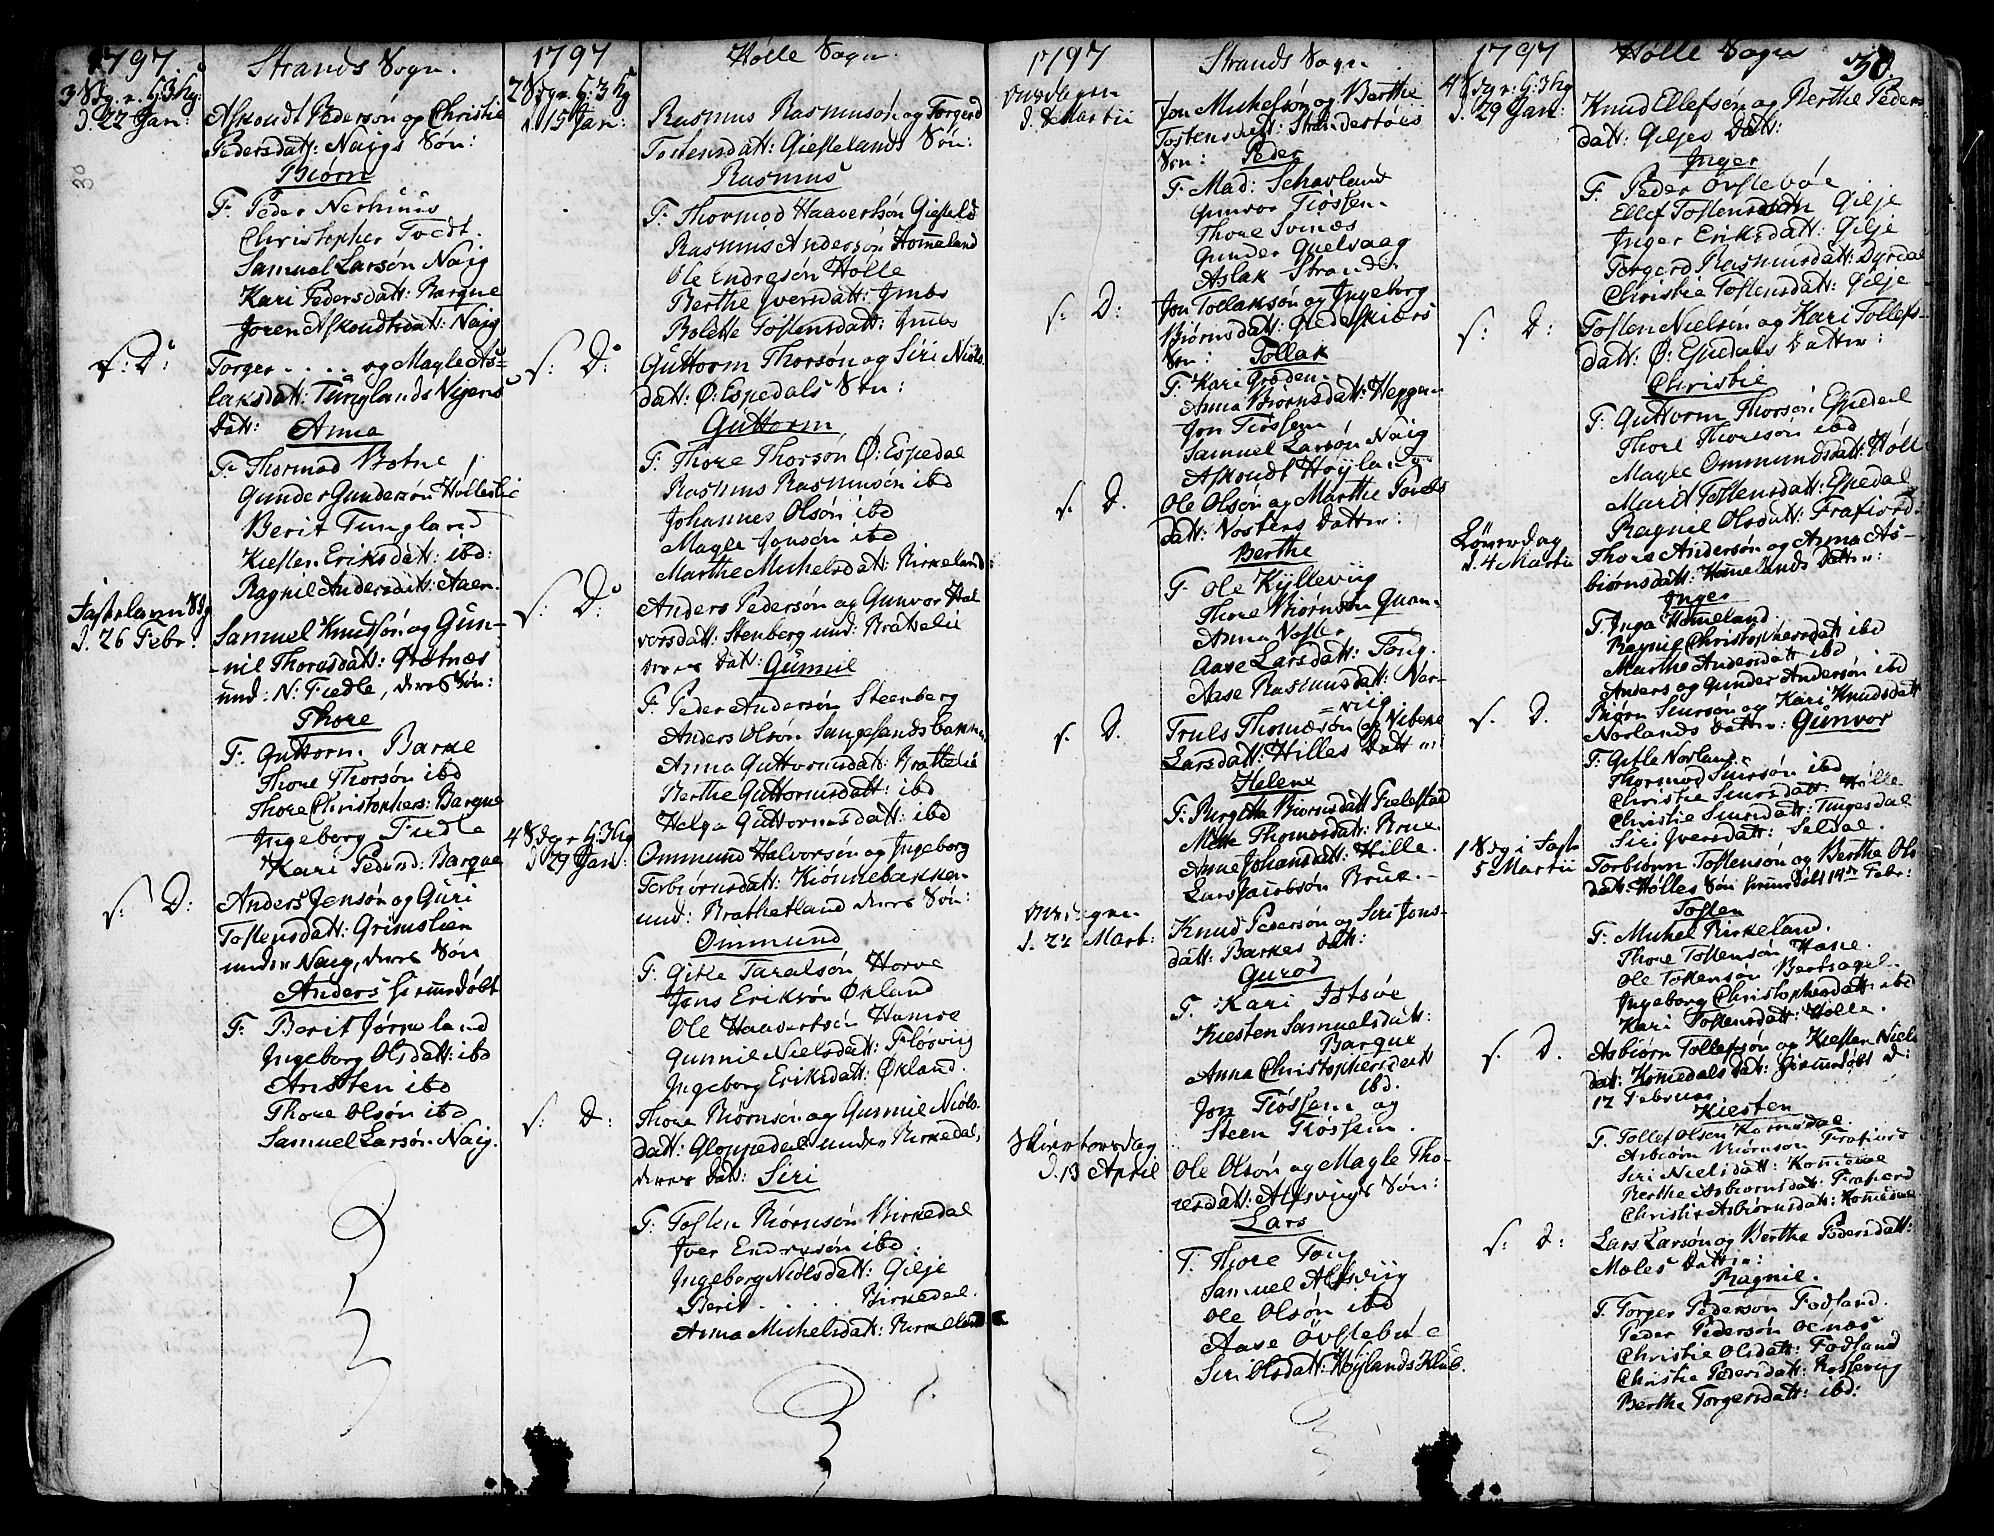 1797.
Strands Sogn.
3 Sdg. e. H: 3 Kg:
d. 22 Jan:
Askoudt Pedersón og Christie
Pedersdatt: Naigs Són:
Biórn
F. Peder Nerhuus
Christopher Todt.
Samuel Larsón Naig
Kari Pedersdatt: Barque
Joren Askoudtsdatt: Naig
s: D:
Torger . . . . og Magle As-
laksdatt: Tunglands
Datt: Anna
F. Thormod Botne
Gunder Gundersón Hólleslie
Berit Tungland
Kiesten Eriksdatt: ibd:
Ragnil Andersdatt: Aaen.
Fastelavn Sdg
d. 26 Febr:
Samuel Knudsón og Gun-
nil Thoresdatt: Grótnæs
und: N: Fiedle, deres Són:
Thore
F. Guttorm Barke
Thore Thorsón ibd
Thore Christophers: Barque
Ingeborg Fiedle
Kari Peders: Barque
s: D:
Anders Jensón og Guri
Tostensdatt: Grimslien
under Naig, deres Són
Anders hiemedóbt
F. Berit Jórpeland
Ingeborg Olsdatt: ibd
Aristen ibd
Thore Olsón ibd
Samuel Larsón Naig.
30
1797
Hólle Sogn.
2 Sdg e. H: 3 Kg
d. 15 Jan:
Rasmus Rasmusón og Torgerd
Tostensdatt: Gieslelands Són:
Rasmus
F. Thormod Haavertsón Giesleld
Rasmus Andersón Homeland
Ole Endresón Hólle
Berthe Iversdatt: Imbs
Bolette Tostensdatt: Imbs
s: D:
Guttorm Thorsón og Siri Niels
datt: Ó: Espedals Són:
Guttorm
F. Thore Thorsón Ó: Espedal
Rasmus Rasmusón ibd
Johannes Olsón ibd
Magle Jonsón ibd
Marthe Michelsdatt: Birkeland:
s: D:
Anders Pedersón og Gunvor Hal
vorsdatt: Stenberg und: Bratelie
deres Datt: Gunnil
F. Peder Andersón Steenberg
Anders Olsón Sangesandsbakken
Anna Guttormsdatt: Brattelie
Berthe Guttormsdatt: ibd
Helga Guttormsdatt: ibd
4 Sdg e H: 3 Kg
d. 29 Jan:
Ommund Halvorsón og Ingeborg
Torbiórnsdatt: Kiónnebakken
und: Brathetland deres Són:
Ommund
F. Gitle Taralsón Horve
Jens Eriksón Ókland
Ole Haavertsón Hamre
Gunnil Nielsdatt: Flósviig
Ingeborg Eriksdatt: Ókland.
s: D:
Thore Biórnsón og Gunnil Niels-
datt: Gloppedal under Birkedal,
deres Datt: Siri
F. Tosten Biórnsón Birkedal
Iver Endresón ibd.
Ingeborg Nielsdatt: Gilje
Berit . . . . . Birkedal
Anna Michelsdatt: Birkeland
1797
Strands Sogn
Onsdagen
d. 8 Martii
Jon Michelsón og Berthe
Tostensdatt: Strandestóes
Són: Peder
F. Mad: Schavland
Gunvor Tiossem
Thore Svinæs
Gunder Quelvaag
Aslak Strande
s: D:
Jon Tollaksón og Ingeborg
Biórnsdatt:
Són: Tollak
F. Kari Groden
Anna Biórnsdatt: Heggen
Jon Tiossem
Samuel Larsón Naig
Askoudt Hóyland
s. D.
Ole Olsón og Marthe
datt: Nostens Datter:
Berthe
F. Ole Kylleviig
Thore Biórnsón Quam
Anna Noster
Aase Larsdatt: Tong.
Aase Rasmusdatt: Nor-
= viig
s. D.
Truls Thomæsón og Vibeke
Larsdatt: Hilles Datter
Helene
F. Burgitha Biornsdatt Fielestad
Mette Thomasdatt: Brue.
Anne Johansdatt: Hille.
Lars Jacobsón Brue. –
Onsdagen
d. 22 Mart:
Knud Pedersón og Siri Jons-
datt: Barkes Datt:
Gurod
F. Kari Idsóe
Kiesten Samuelsdatt:
Barque
Anna Christophersdatt
ibd.
Jon Tiossem og
Steen Tiossem.
Skiertorsdag
d. 13 April
Ole Olsón og Magle Tho-
resdatt: Alfsviigs Són:
Lars
F. Thore Tong
Samuel Alfsviig
Ole Olsón ibd
Aase Óvstebóe
Siri Olsdatt: Hóylands Klub.
1797
Hólle Sogn
30.
4 Sdg e: H: 3 Kg
d. 29 Jan:
Knud Ellefsón og Berthe Peders
datt: Giljes Datt:
Inger
F. Peder Óvstebóe
Ellef Tostensón Gilje
Inger Eriksdatt: Gilje
Torgerd Rasmusdatt: Dyrdal
Christie Tostensdatt: Gilje
s: D:
Tosten Nielsón og Kari Tollefs-
datt: Ó: Espedals Datter:
Christie
F. Guttorm Thorsón Espedal
Thore Thoresón ibd
Magle Ommundsdatt: Hólle
Marit Tostensdatt: Espedal
Ragnil Olsdatt: Frafiord.
Lóverdag
d. 4 Martii
Thors Andersón og Anna As-
biórnsdatt: Homelands Datter:
Inger
F. Inga Homeland.
Ragnil Christophersdatt ibd
Marthe Andersdatt ibd
Anders og Gunder Andersón ibd
s. D.
Biórn Siursón og Kari Knudsdatt
Norlands Datter: Gunvor
F. Gitle Norland
Thormod Siursón ibd
Christie Siursdatt Hólle
Christie Siursdatt: Tungesdal
Siri Iversdatt: Seldal.
1 Sdg i Fast
5 Martii
Torbiórn Tostensón og Berthe Ols
datt: Hólles Són hiemedóbt 19de Febr:
Tosten
F. Michel Birkeland.
Thore Tostensón Hane.
Ole Tostensón Bertsagel.
Ingeborg Christophersdatt ibd
Kari Tostensdatt: Hólle.
s. D.
Asbiórn Tollefsón og Kiesten Niels
datt: Komedals Datt: hiemedóbt d:
12 Februar.
Kiesten
F. Tollef Olsen Komedal
Asbiórn Biórnsón Frafiord
Siri Nielsdatt: Komedal
Berthe Asbiornsdatt: Frafiord
Christie Asbiornsdatt: Komedal
s. D:
Lars Larsón og Berthe Pedersdatt:
Moles Datter:
Ragnil.
F. Torger Pedersón Fodland.
Peder Pedersón Ocnæs
Christie Olsdatt: Fodland
Christie Pedersdatt: Rosseviig
Berthe Torgersdatt: ibd: